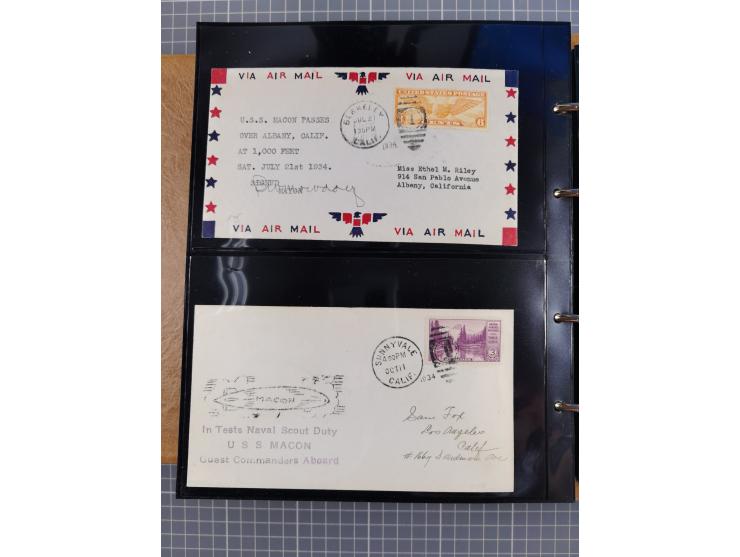 VIA AIR MAIL
VIA AIR MAIL
UNITED STATES POSTAGE
6
BERKELEY
JUL 21
1 30 PM
CALIF.
1934
U.S.S. MACON PASSES
OVER ALBANY, CALIF.
AT 1,000 FEET
SAT. JULY 21st 1934.
SIGNED
MAYOR
Miss Ethel M. Riley
914 San Pablo Avenue
Albany, California
VIA AIR MAIL
VIA AIR MAIL
3
SUNNYVALE
OCT 11
CALIF.
1934
MACON
In Tests Naval Scout Duty
U S S MACON
Guest Commanders Aboard
Sam Fox
Los Angeles
Calif